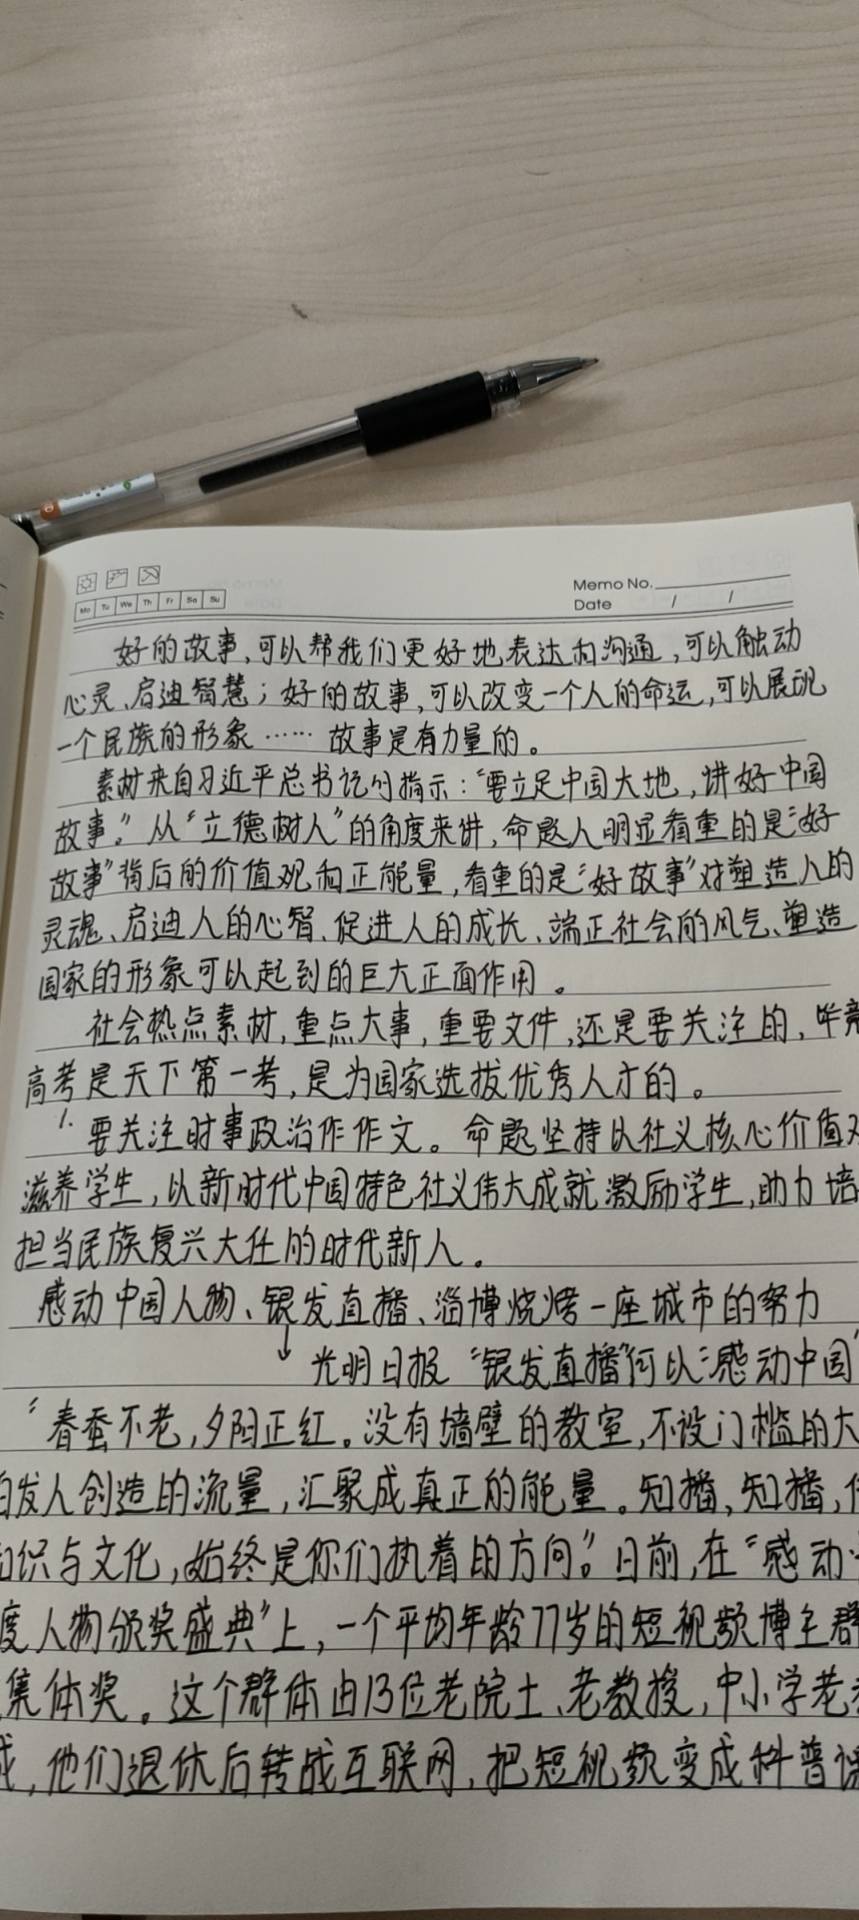 Memo No.
Mo Tu We Th Fr Sa Su
Date / /
好的故事,可以帮我们更好地表达和沟通,可以触动
心灵、启迪智慧;好的故事,可以改变一个人的命运,可以展现
一个民族的形象……故事是有力量的。
素材来自习近平总书记的指示:“要立足中国大地,讲好中国
故事。”从“立德树人”的角度来讲,命题人明显看重的是“好
故事”背后的价值观和正能量,看重的是“好故事”对塑造人的
灵魂、启迪人的心智、促进人的成长、端正社会的风气、塑造
国家的形象可以起到的巨大正面作用。
社会热点素材,重点大事,重要文件,还是要关注的,毕竟
高考是天下第一考,是为国家选拔优秀人才的。
1. 要关注时事政治作作文。命题坚持以社义核心价值
滋养学生,以新时代中国特色社义伟大成就激励学生,助力培
担当民族复兴大任的时代新人。
感动中国人物、银发直播、淄博烧烤一座城市的努力
↓ 光明日报 “银发直播”何以“感动中国”
“春蚕不老,夕阳正红。没有墙壁的教室,不设门槛的大
发人创造的流量,汇聚成真正的能量。知播,知播,
识与文化,始终是你们执着的方向。”日前,在“感动
度人物颁奖盛典”上,一个平均年龄77岁的短视频博主群
集体奖。这个群体由13位老院士、老教授,中小学老
成,他们退休后转战互联网,把短视频变成科普课